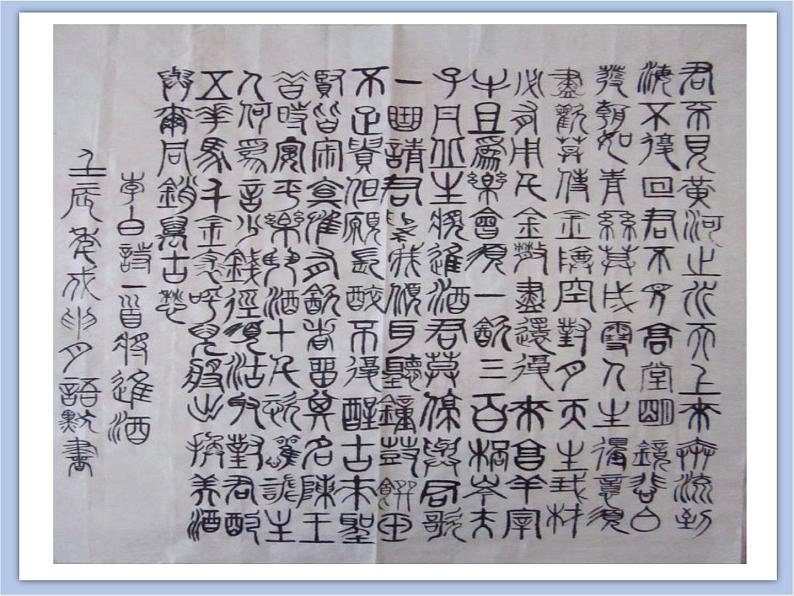 君不見黃河之水天上來奔流到
海不復回君不見高堂明鏡悲白
髮朝如青絲莫成雪人生得意須
盡歡莫使金樽空對月天生我材
必有用千金散盡還復來烹羊宰
牛且為樂會須一飲三百杯岑夫
子丹丘生將進酒君莫停與君歌
一曲請君為我傾耳聽鐘鼓饌玉
不足貴但願長醉不復醒古來聖
賢皆寂寞惟有飲者留其名陳王
昔時宴平樂斗酒十千恣歡謔主
人何為言少錢徑須沽取對君酌
五花馬千金裘呼兒將出換美酒
與爾同銷萬古愁
李白詩一首將進酒
壬辰年月語默書